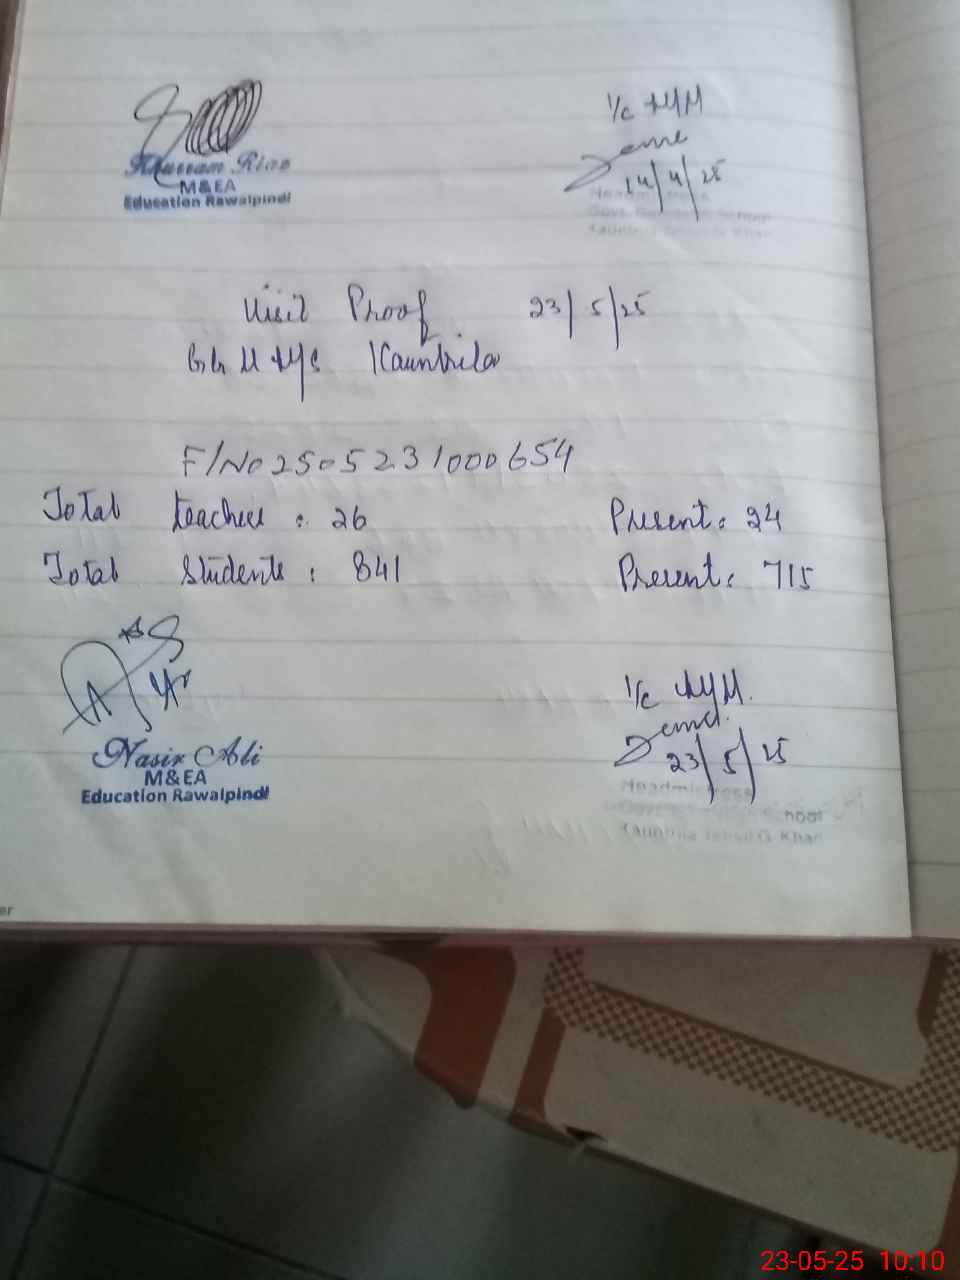 Khurram Riaz
M&EA
Education Rawalpindi
I/c HM
14/4/25
Headmistress
School
Khan
Visit Proof 23/5/25
Kauntrila
F/No 2505231000654
Total teachers : 26 Present : 24
Total Students : 841 Present : 715
Nasir Ali
M&EA
Education Rawalpindi
I/c HM.
23/5/25
Headmistress
School
Khan
er
23-05-25 10:10